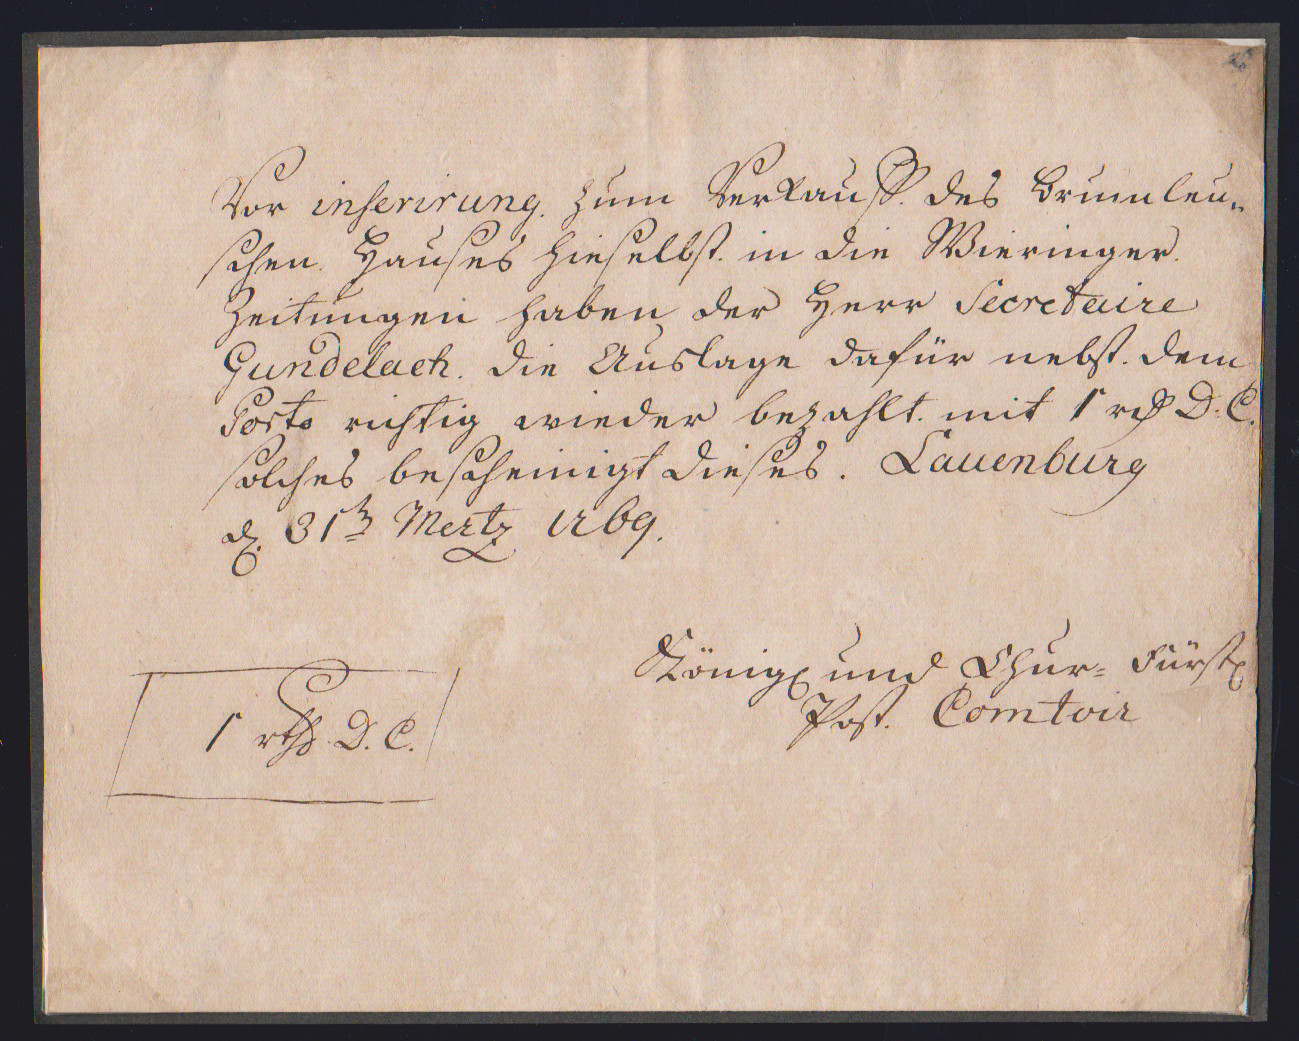 Vor inserirung zum Verkauff des Brumleu-
schen Hauses hieselbst in die Wieringer
Zeitungen haben der Herr Secretaire
Gundelach die Auslage dafür nebst dem
Porto richtig wieder bezahlt mit 1 rthl D. C.
solches bescheinigt dieses. Lauenburg
d. 31t Mertz 1769.
Königl und Chur- Fürstl
Post Comtoir
1 rthl D. C.